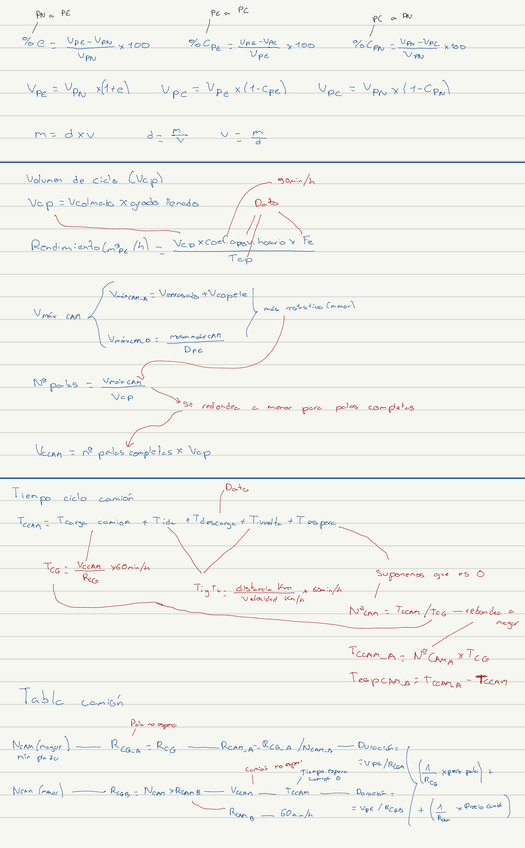 PN a PE
PE a PC
PC a PN
%e = (V_PE - V_PN / V_PN) x 100
%C_PE = (V_PE - V_PC / V_PE) x 100
%C_PN = (V_PN - V_PC / V_PN) x 100
V_PE = V_PN x (1+e)
V_PC = V_PE x (1-C_PE)
V_PC = V_PN x (1-C_PN)
m = d x v
d = m/v
v = m/d
Volumen de ciclo (Vcp)
Vcp = Vcolmato x grado llenado
50min/h
Dato
Rendimiento (m³PE/h) = Vcp x Coef. horario x Fe / Tcp
Vmáx CAM
VmáxCAM_A = Venrasado + Vcopete
más restrictivo (menor)
VmáxCAM_B = / DPE
Nº palas = VmáxCAM / Vcp
Se redondea a menor para palas completas
VCCAM = nº palas completas x Vcp
Tiempo ciclo camión
Dato
TCCAM = Tcarga camion + Tida + Tdescarga + Tvuelta + Tespera
TCG = VCCAM / RCG x60min/h
TiyTv = distancia Km / Velocidad Km/h x 60min/h
Suponemos que es 0
NºCAM = TCCAM / TCG — redondeo a mayor
TCCAM_A = NºCAM_A x TCG
TespCAM_A = TCCAM_A - TCCAM
Tabla camión
Pala no espera
NCAM (mayor) — RCG_A = RCG — RCAM_A = RCG_A / NCAM_A — Duración =
= VPE / RCGA
(1/RCG x precio pala) +
Camión no espera
Tiempo espera camion 0
NCAM (menor) — RCGB = NCAM x RCAM_B — VCCAM — TCCAM — Duración =
= VPE / RCGB
+ (1/RCAM x Precio camión)
RCAM_B — 60min/h